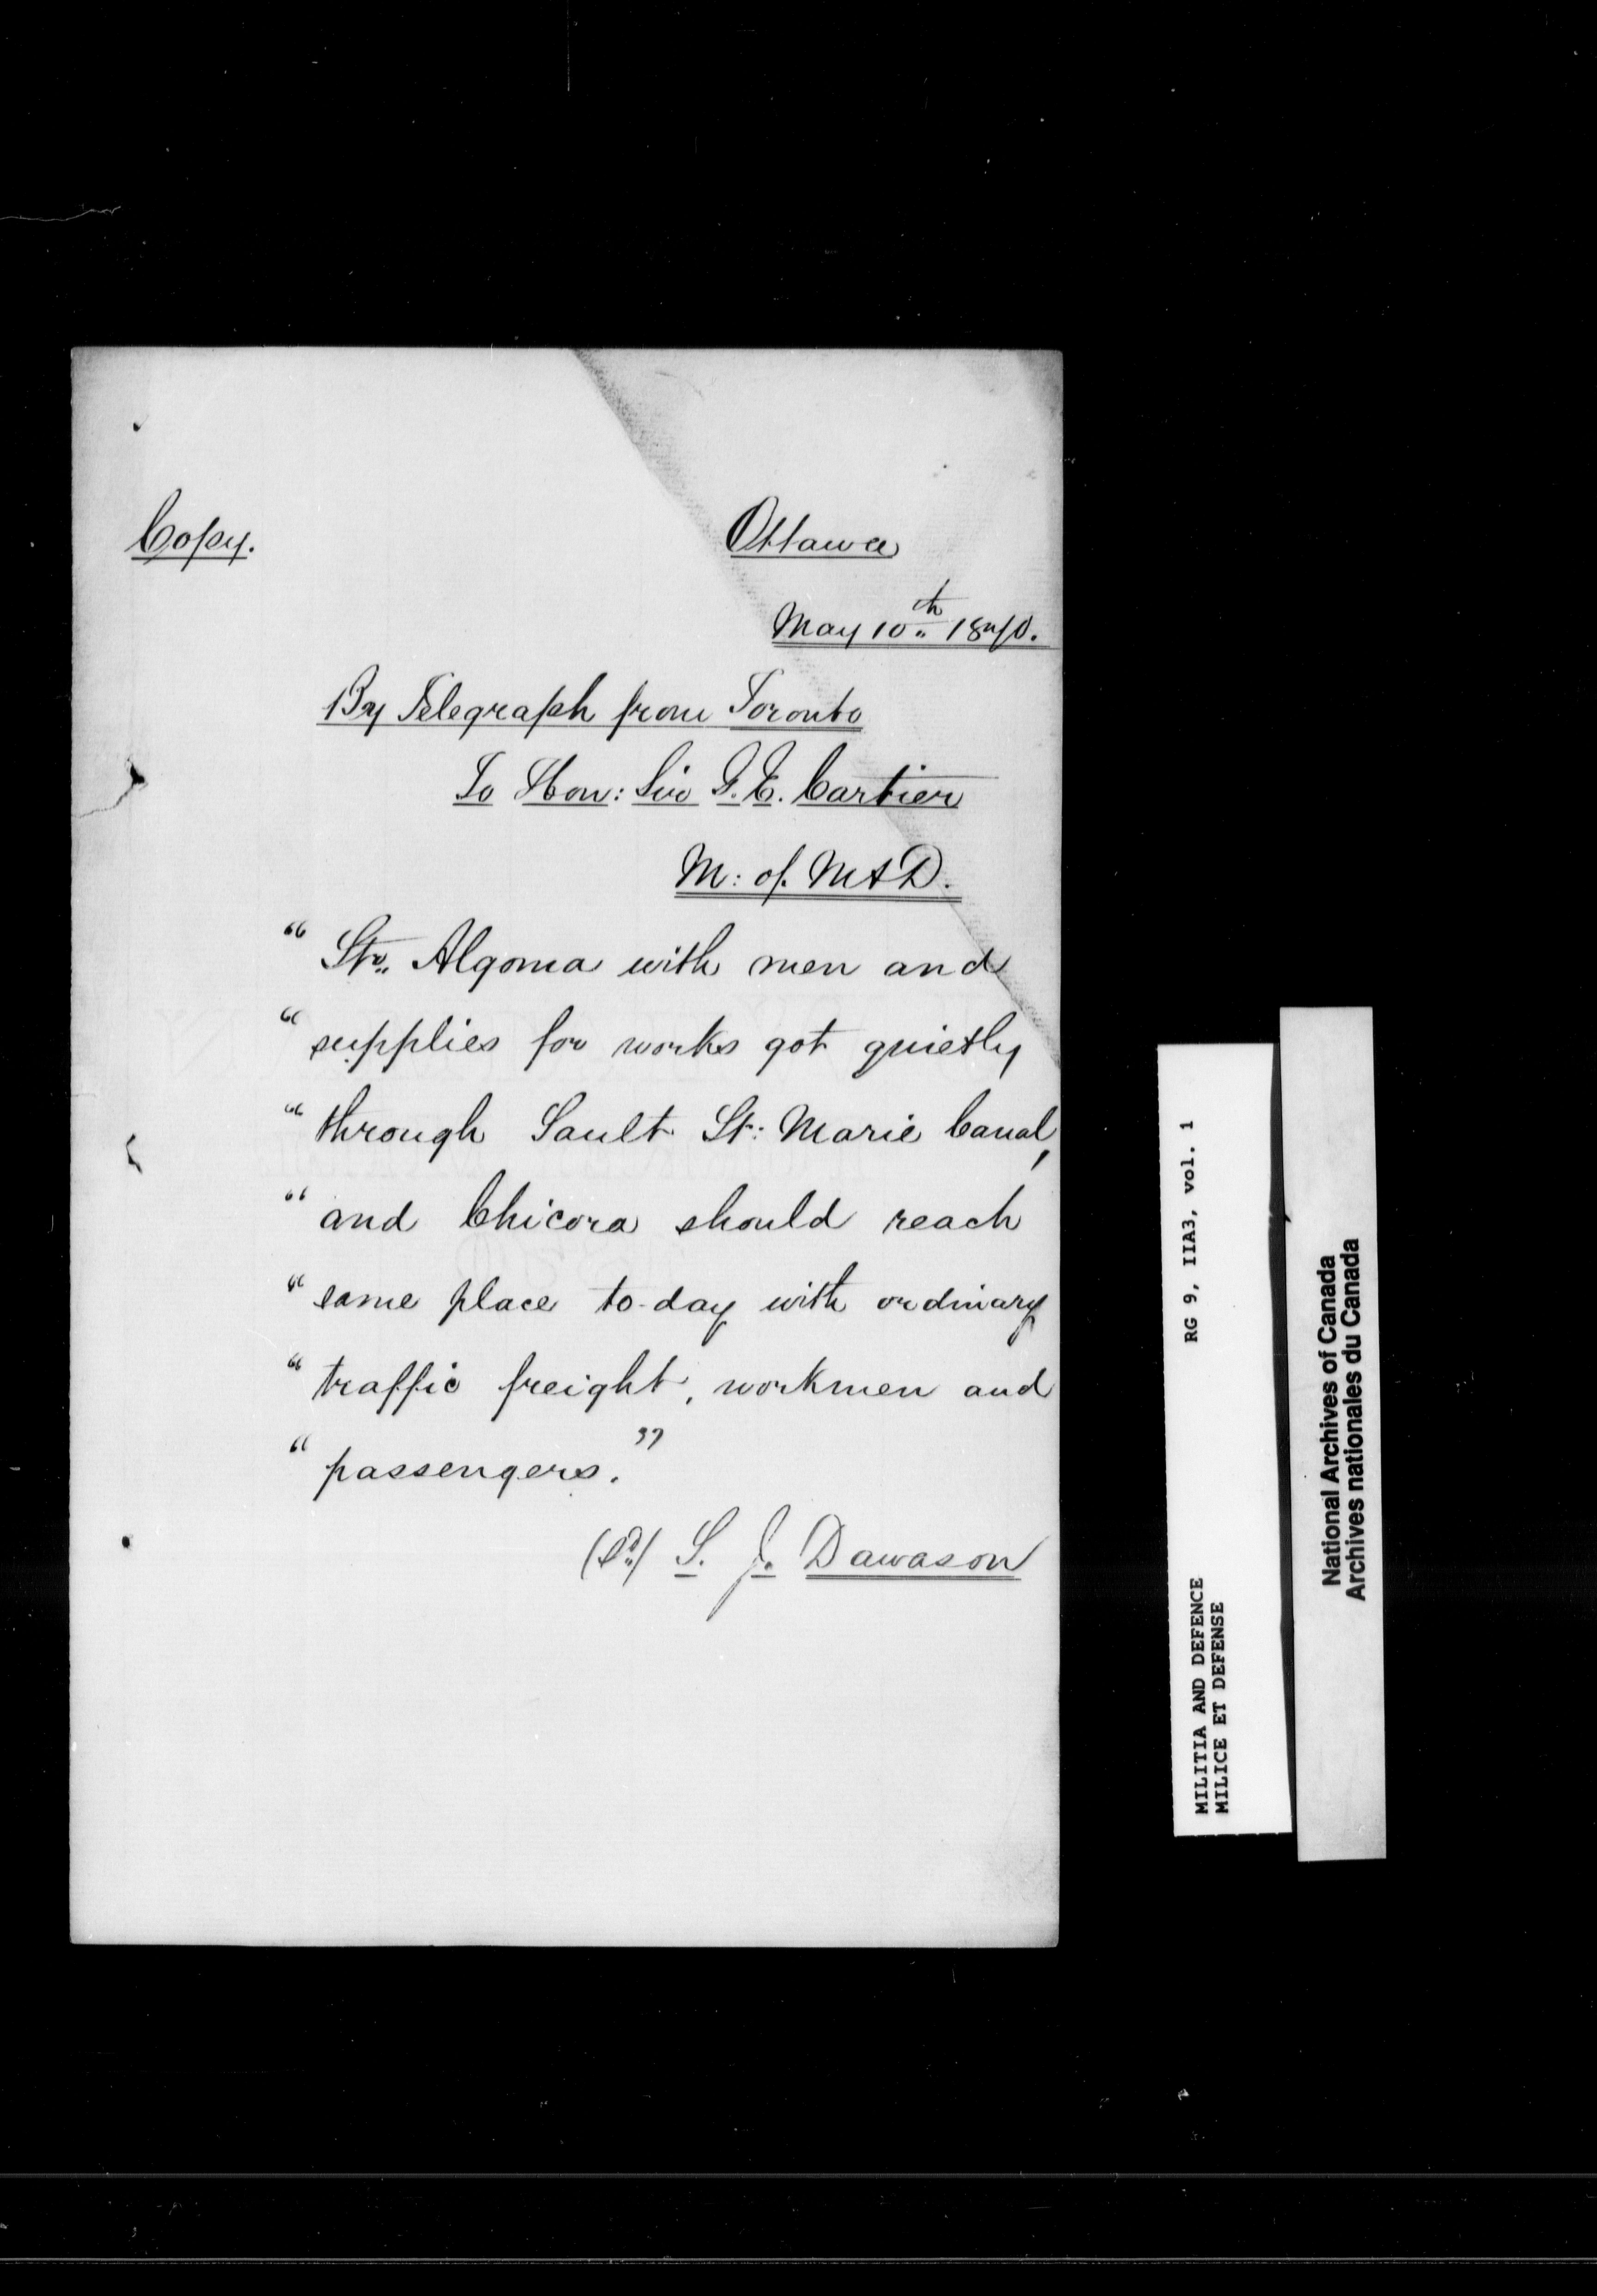 Copy.
Ottawa
May 10th 1870.
By Telegraph from Toronto
To Hon: Sir G. E. Cartier
M: of. M & D.
"Str. Algoma with men and
"supplies for works got quietly
"through Sault St: Marie Canal,
"and Chicora should reach
"same place to-day with ordinary
"traffic freight, workmen and
"passengers."
(Sd) S. J. Dawason
RG 9, IIA3, vol. 1
MILITIA AND DEFENCE
MILICE ET DEFENSE
National Archives of Canada
Archives nationales du Canada